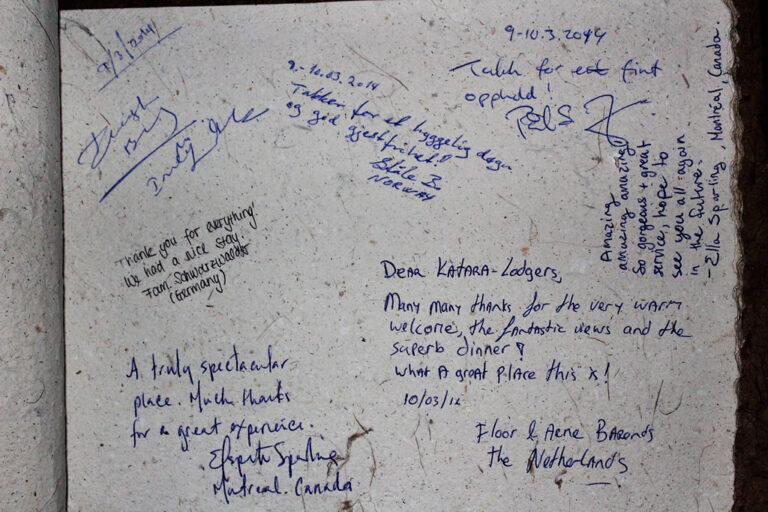 9/3/2014
9-10.03.2014
Takker for et hyggelig døgn
og god gjestfrihet!
Ståle B.
NORWAY
9-10.3.2014
Takk for et fint
opphold!
Amazing
amazing amazing!
So gorgeous + great
service, hope to
see you all again
in the future.
- Ella Sparling, Montréal, Canada.
Thank you for everything!
We had a nice stay.
Fam. Schwarzwälder
(Germany)
Dear KATARA-Lodgers,
Many many thanks for the very warm
welcome, the fantastic views and the
superb dinner!
What a great place this is!
10/03/14
Floor & Arne Barends
the Netherlands
A truly spectacular
place. Much thanks
for a great experience.
Elspeth Sparling
Montreal. Canada